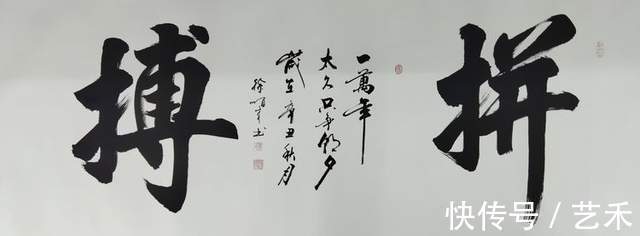 拼
一萬年
太久只争朝夕
歲在辛丑秋月
徐书
搏
快传号 / 艺禾